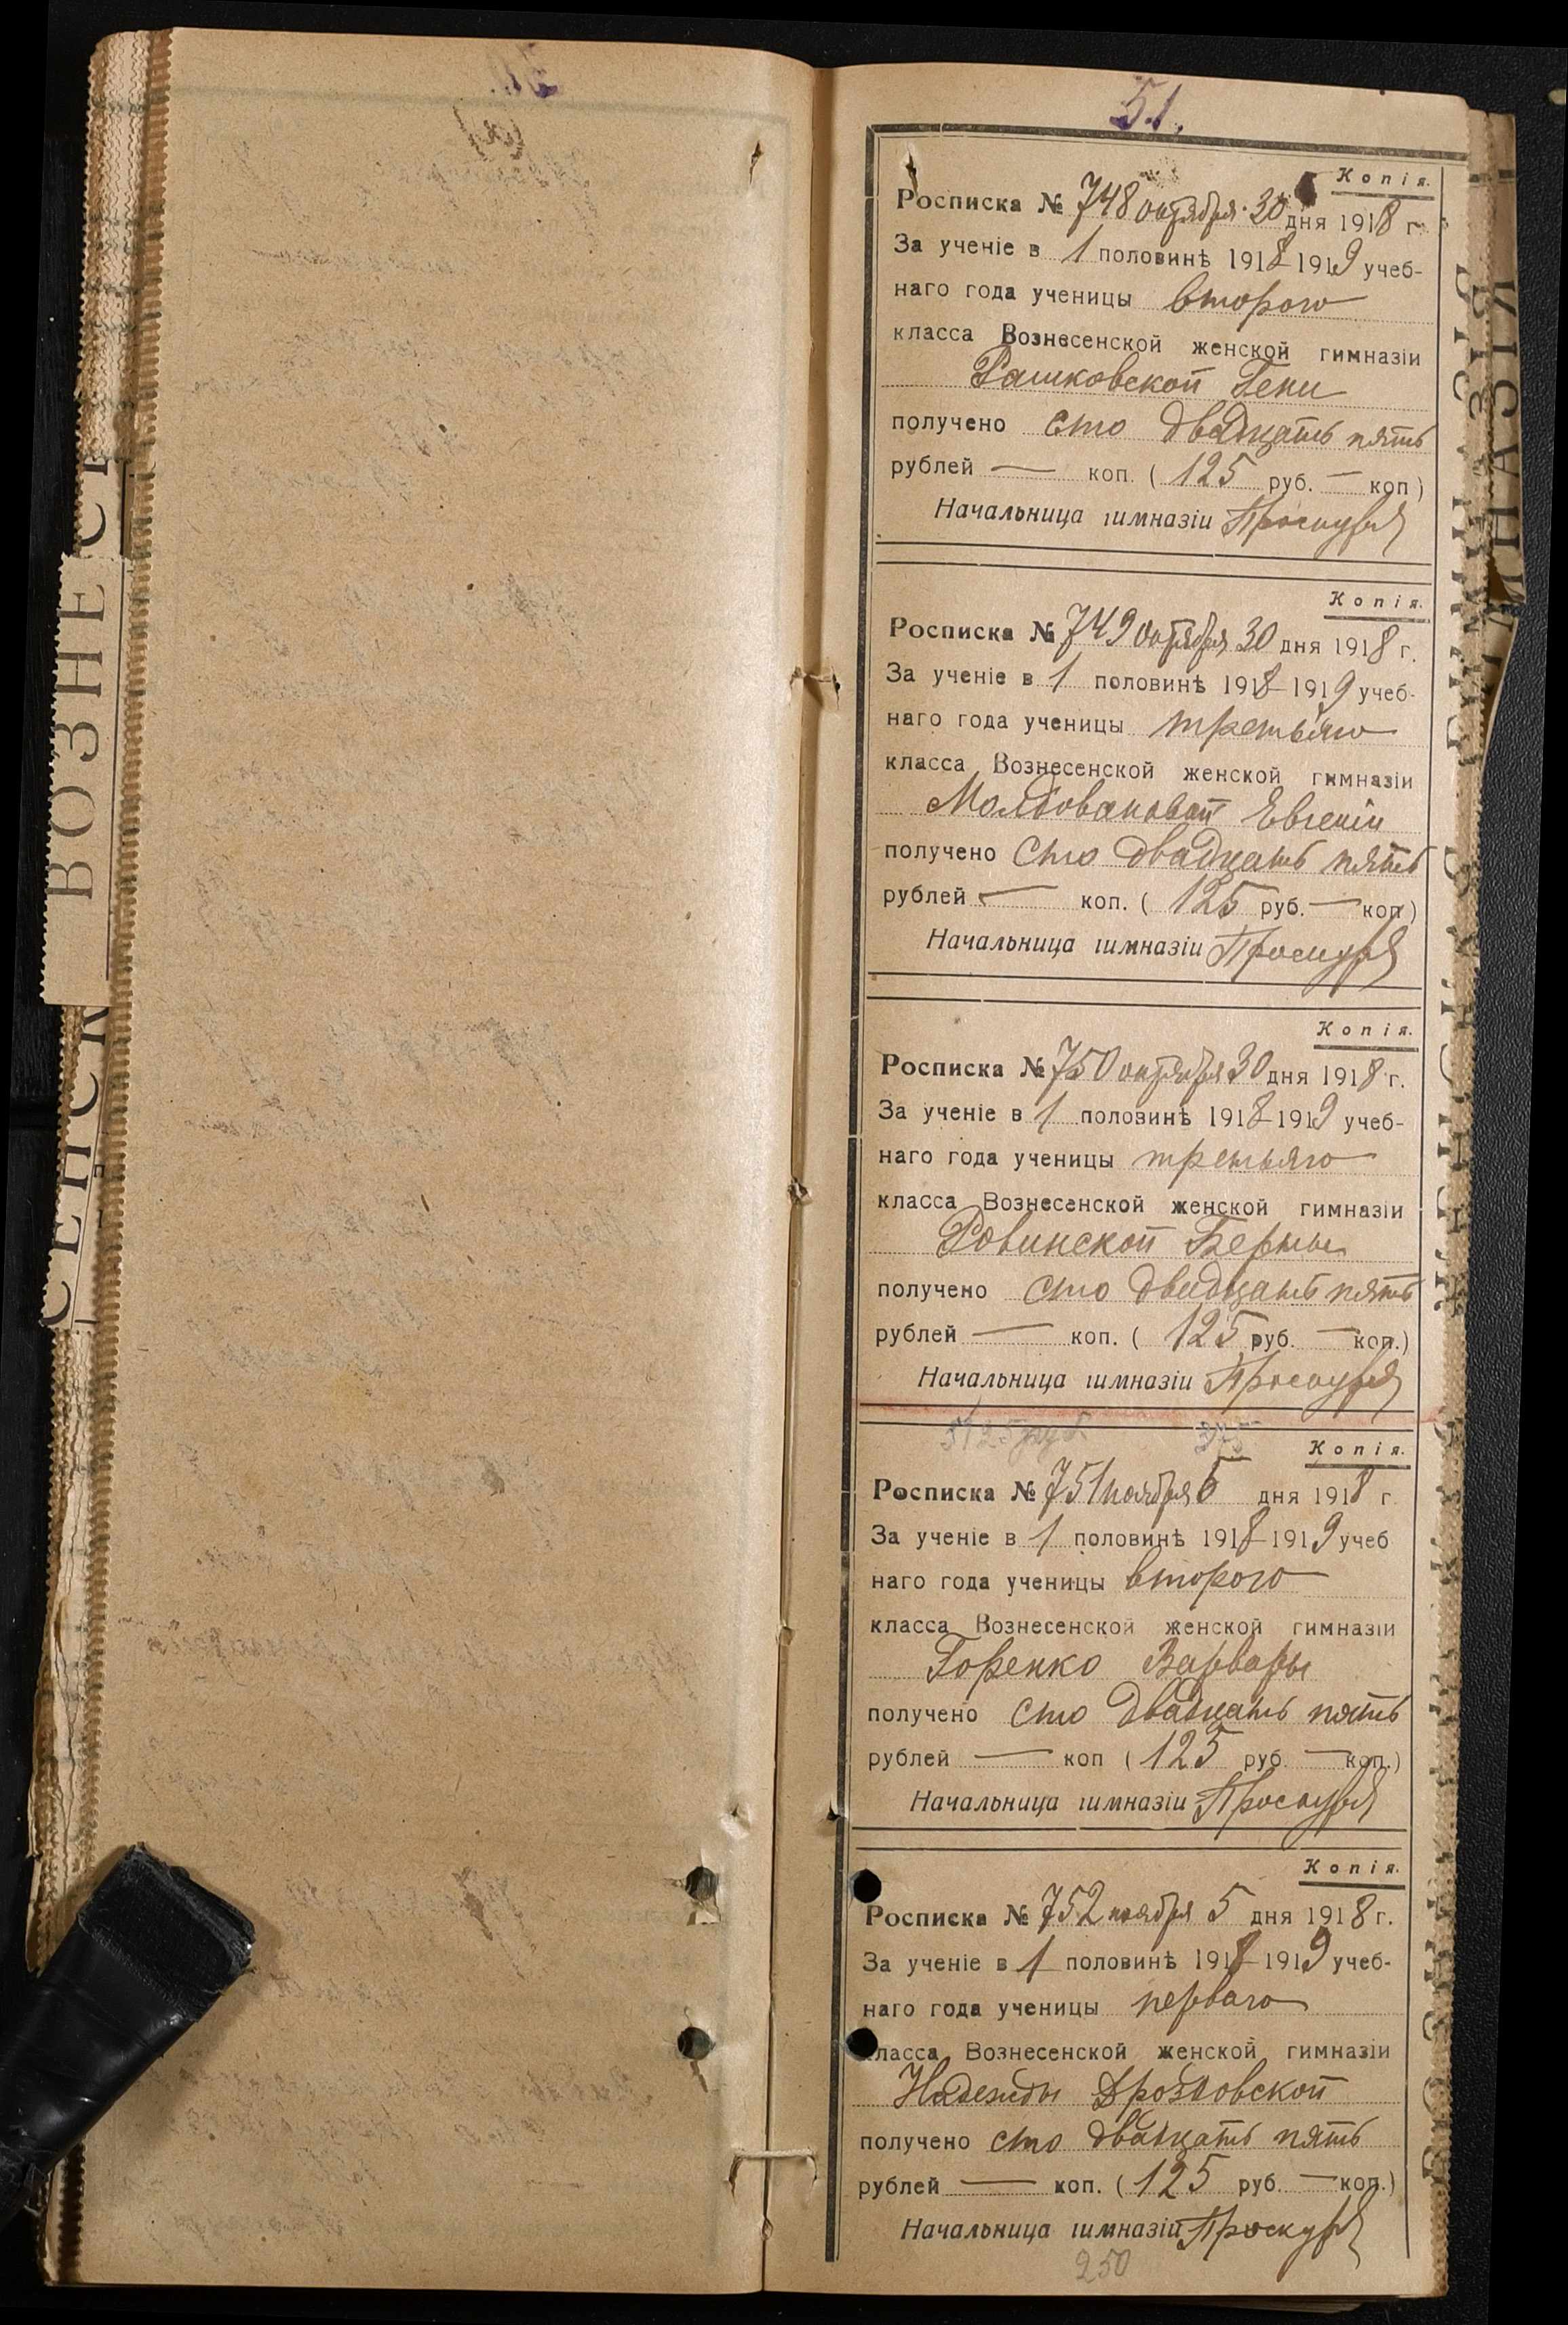 51.
Копія.
Росписка № 748 октября 30 дня 1918 г.
За ученіе в 1 половинѣ 1918-1919 учеб-
наго года ученицы второго
класса Вознесенской женской гимназіи
Рашковской Гени
получено сто двадцать пять
рублей — коп. (125 руб. — коп)
Начальница гимназіи Проскуря
Копія.
Росписка № 749 октября 30 дня 1918 г.
За ученіе в 1 половинѣ 1918-1919 учеб-
наго года ученицы третьяго
класса Вознесенской женской гимназіи
Молдовановой Евгеніи
получено сто двадцать пять
рублей — коп. (125 руб. — коп)
Начальница гимназіи Проскуря
Копія.
Росписка № 750 октября 30 дня 1918 г.
За ученіе в 1 половинѣ 1918-1919 учеб-
наго года ученицы третьяго
класса Вознесенской женской гимназіи
Ровинской Берты
получено сто двадцать пять
рублей — коп. (125 руб. — коп.)
Начальница гимназіи Проскуря
375
Копія.
Росписка № 751 ноября 5 дня 1918 г
За ученіе в 1 половинѣ 1918-1919 учеб
наго года ученицы второго
класса Вознесенской женской гимназіи
Горенко Варвары
получено сто двадцать пять
рублей — коп (125 руб. — коп.)
Начальница гимназіи Проскуря
Копія.
Росписка № 752 ноября 5 дня 1918 г.
За ученіе в 1 половинѣ 1918-1919 учеб-
наго года ученицы перваго
класса Вознесенской женской гимназіи
Надежды Дроздовской
получено сто двадцать пять
рублей — коп. (125 руб. — коп.)
Начальница гимназіи Проскуря
250